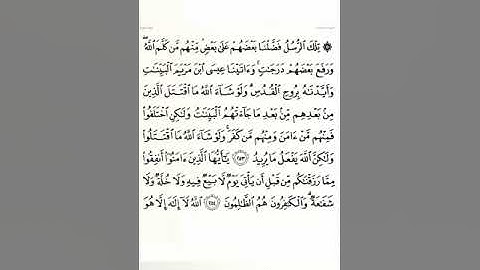 ۞ تِلْكَ ٱلرُّسُلُ فَضَّلْنَا بَعْضَهُمْ عَلَىٰ بَعْضٍ مِّنْهُم مَّن كَلَّمَ ٱللَّهُ
وَرَفَعَ بَعْضَهُمْ دَرَجَٰتٍ وَءَاتَيْنَا عِيسَى ٱبْنَ مَرْيَمَ ٱلْبَيِّنَٰتِ
وَأَيَّدْنَٰهُ بِرُوحِ ٱلْقُدُسِ وَلَوْ شَآءَ ٱللَّهُ مَا ٱقْتَتَلَ ٱلَّذِينَ
مِنۢ بَعْدِهِم مِّنۢ بَعْدِ مَا جَآءَتْهُمُ ٱلْبَيِّنَٰتُ وَلَٰكِنِ ٱخْتَلَفُوا۟
فَمِنْهُم مَّنْ ءَامَنَ وَمِنْهُم مَّن كَفَرَ وَلَوْ شَآءَ ٱللَّهُ مَا ٱقْتَتَلُوا۟
وَلَٰكِنَّ ٱللَّهَ يَفْعَلُ مَا يُرِيدُ ٢٥٣ يَٰٓأَيُّهَا ٱلَّذِينَ ءَامَنُوٓا۟ أَنفِقُوا۟
مِمَّا رَزَقْنَٰكُم مِّن قَبْلِ أَن يَأْتِىَ يَوْمٌ لَّا بَيْعٌ فِيهِ وَلَا خُلَّةٌ وَلَا
شَفَٰعَةٌ وَٱلْكَٰفِرُونَ هُمُ ٱلظَّٰلِمُونَ ٢٥٤ ٱللَّهُ لَآ إِلَٰهَ إِلَّا هُوَ